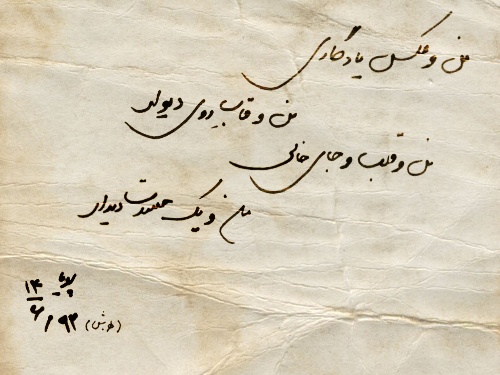 من و عکس یادگاری
من و قاب روی دیوار
من و قلب و جای خالی
من و یک حسرت دیدار
پویا
۱۴
۶ / ۹۳